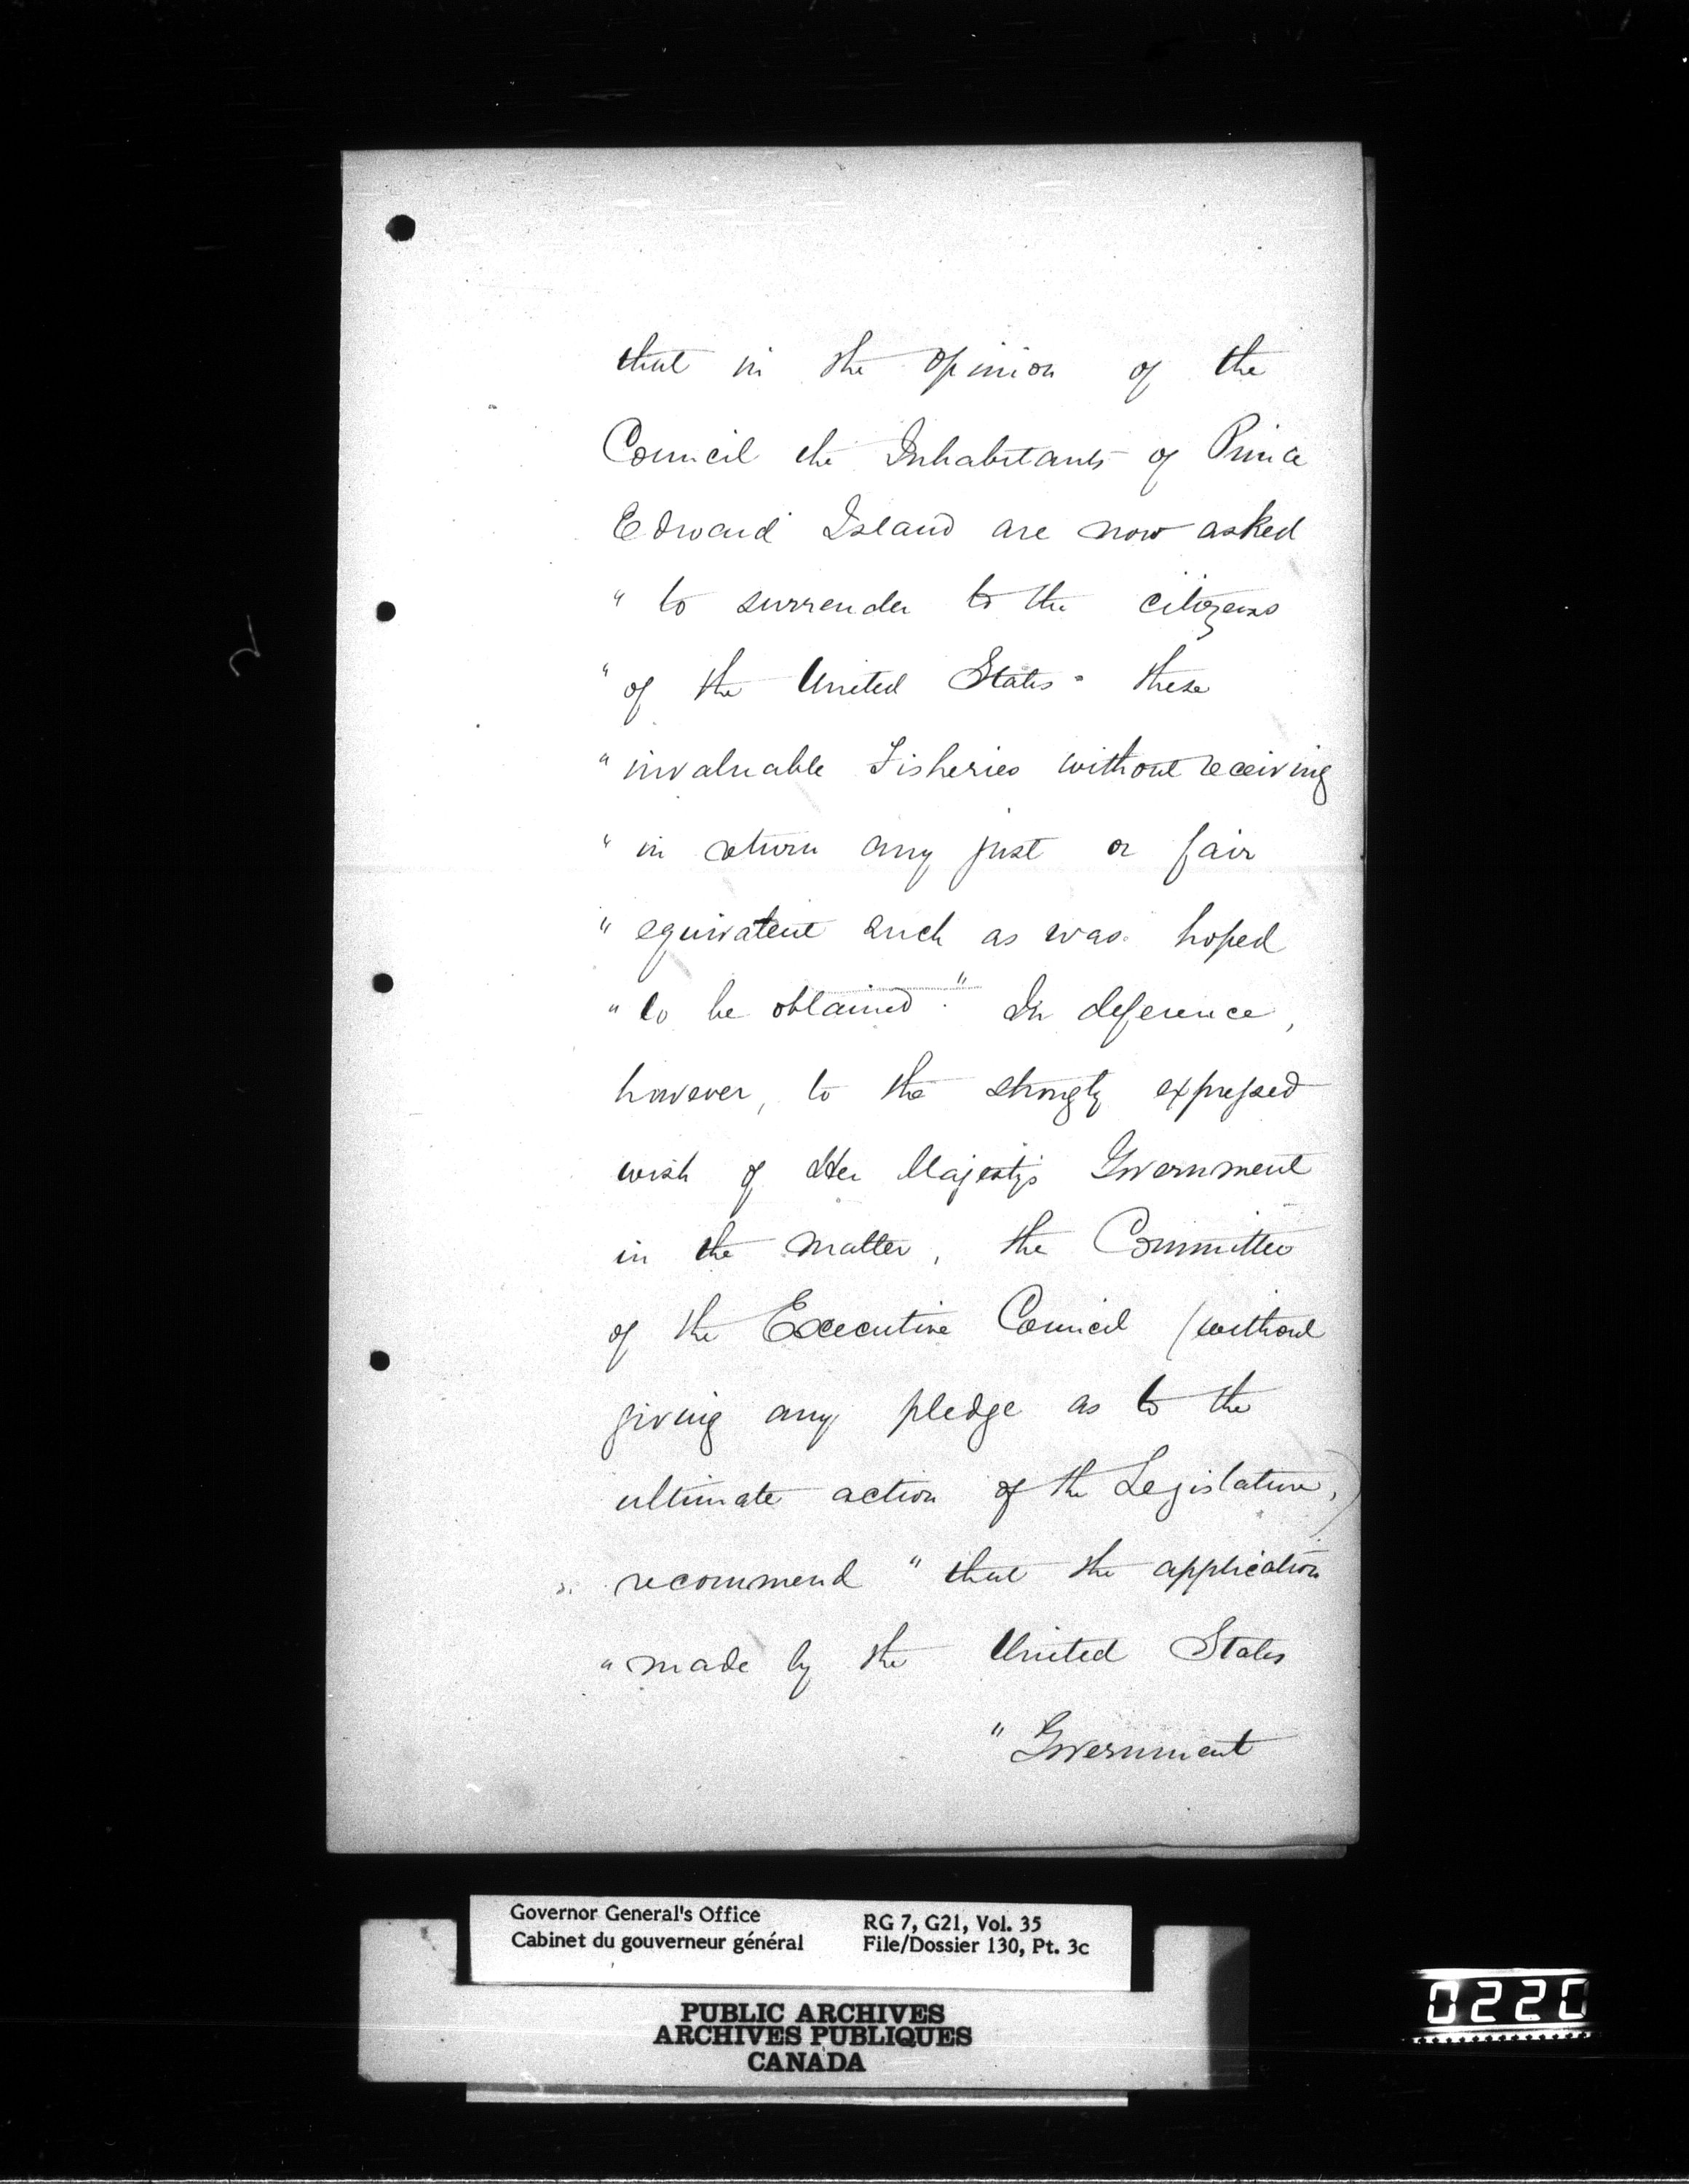 that in the opinion of the
Council the Inhabitants of Prince
Edward Island are now asked
" to surrender to the citizens
" of the United States these
" invaluable Fisheries without receiving
" in return any just or fair
" equivalent such as was hoped
" to be obtained." In deference,
however, to the strongly expressed
wish of Her Majesty's Government
in the matter, the Committee
of the Executive Council (without
giving any pledge as to the
ultimate action of the Legislature,)
recommend " that the application
" made by the United States
" Government
Governor General's Office
Cabinet du gouverneur général
RG 7, G21, Vol. 35
File/Dossier 130, Pt. 3c
PUBLIC ARCHIVES
ARCHIVES PUBLIQUES
CANADA
0220